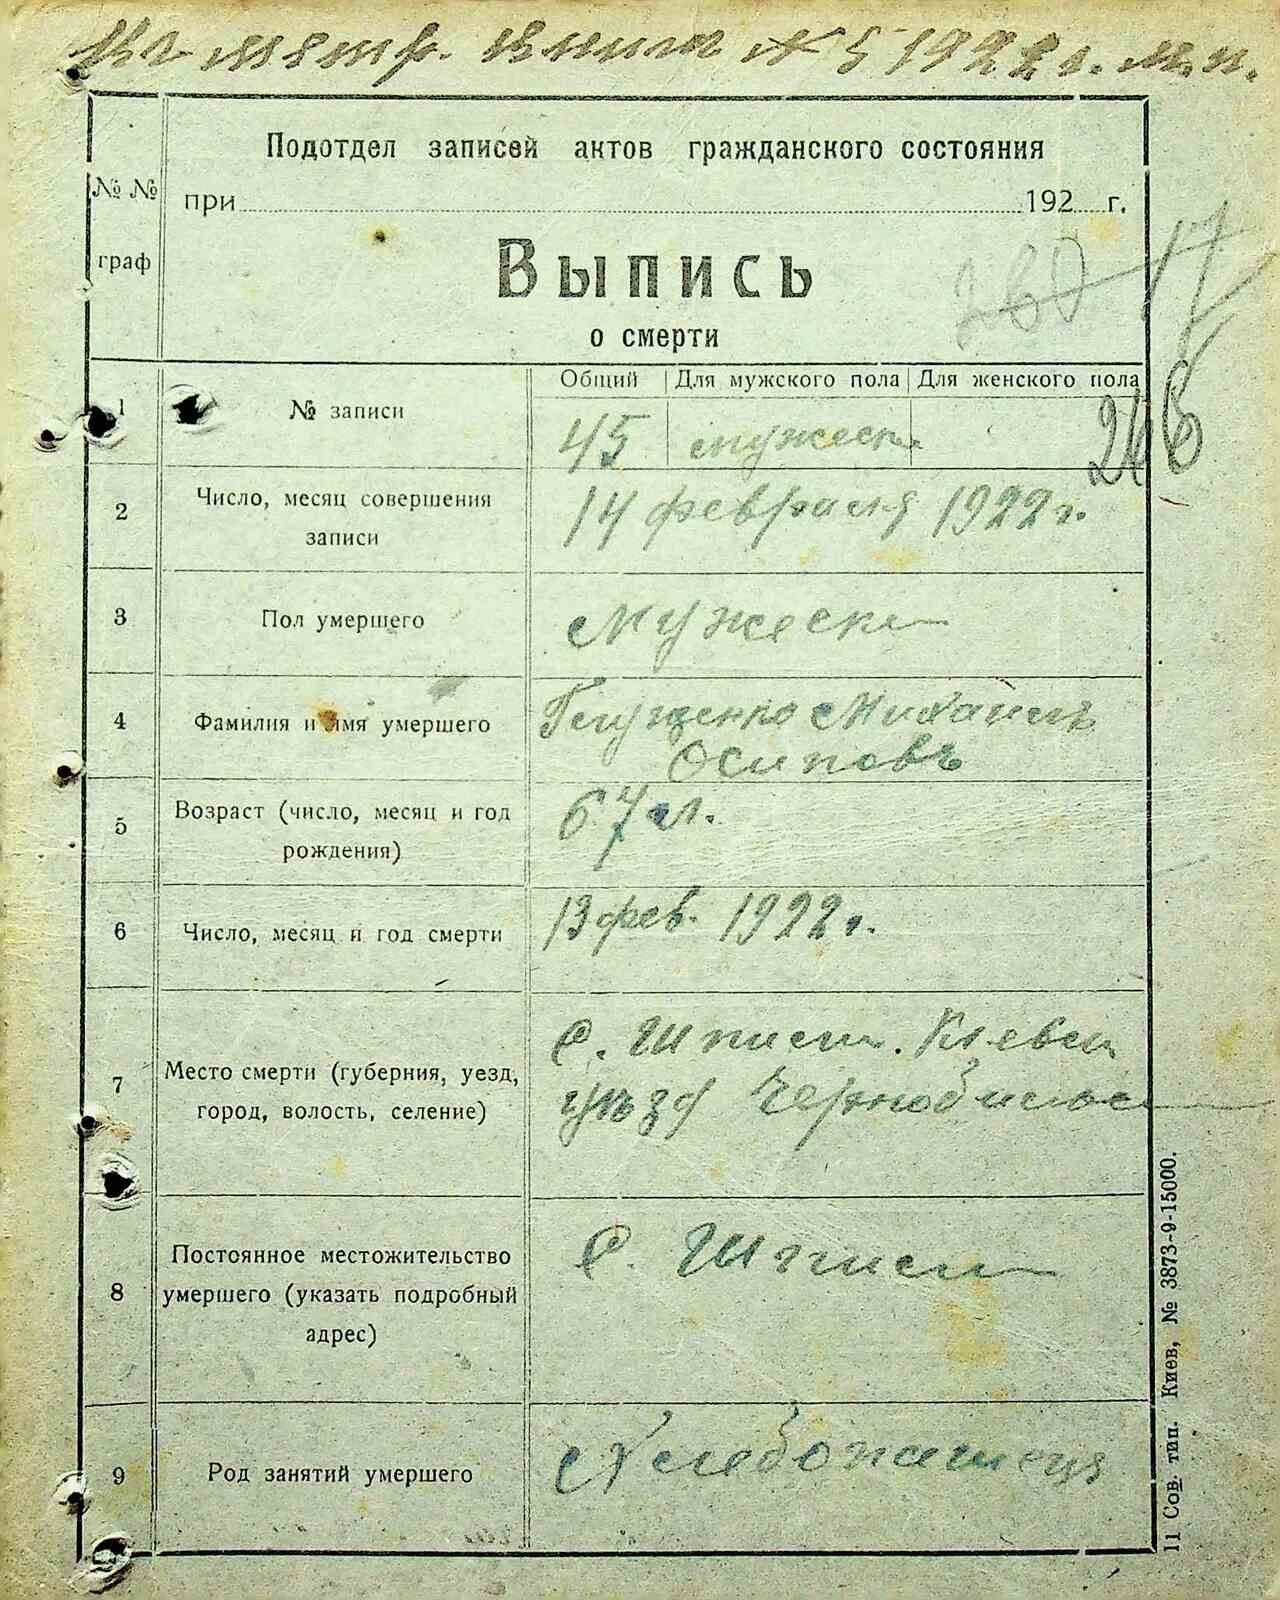 метр. книги № 5 1922 г. м. п.
Подотдел записей актов гражданского состояния
№ №
при 192 г.
граф
Выпись
о смерти
17
Общий Для мужского пола Для женского пола
1 № записи 45 мужеск
2 Число, месяц совершения 14 февраля 1922 г.
записи
3 Пол умершего Мужеск
4 Фамилия и имя умершего Глущенко Михаилъ
Осиповъ
5 Возраст (число, месяц и год 67 л.
рождения)
6 Число, месяц и год смерти 13 фев. 1922 г.
С. Шпили. Киевск
7 Место смерти (губерния, уезд,
город, волость, селение) уѣзд
Постоянное местожительство С. Шпили
8 умершего (указать подробный
адрес)
9 Род занятий умершего Хлебопашец
11 Сов. тип. Киев, № 3873-9-15000.